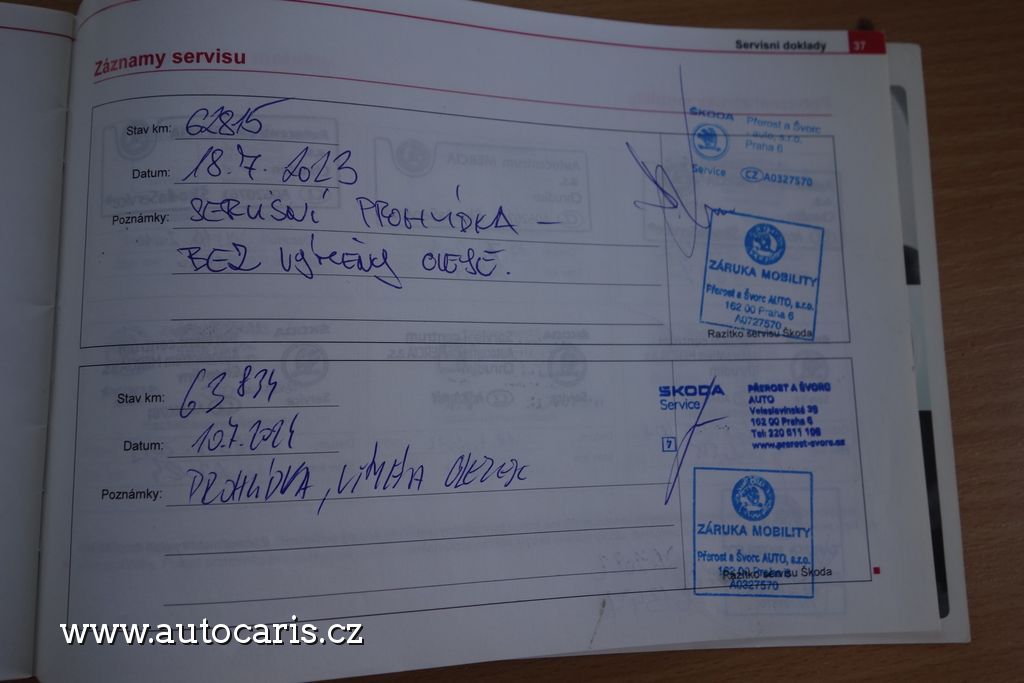 Servisní doklady 37
Záznamy servisu
Stav km: 62815
Datum: 18.7.2023
Poznámky: SERVISNÍ PROHLÍDKA –
BEZ VÝMĚNY OLEJE.
ŠKODA
Service
Přerost a Švorc
auto, s.r.o.
Praha 6
CZ A0327570
ZÁRUKA MOBILITY
Přerost a Švorc AUTO, s.r.o.
162 00 Praha 6
A0727570
Razítko servisu Škoda
Stav km: 63834
Datum: 10.7.2024
Poznámky: PROHLÍDKA,
ŠKODA
Service
7
PŘEROST A ŠVORC
AUTO
Veleslavínská 39
162 00 Praha 6
www.prerost-svorc.cz
ZÁRUKA MOBILITY
Přerost a Švorc AUTO, s.r.o.
162 00 Praha 6
Razítko servisu Škoda
A0327570
www.autocaris.cz